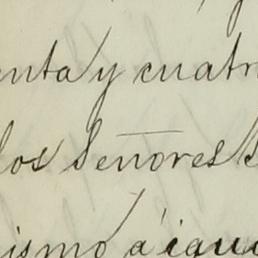 enta y cuatr
los Señores S
ismo á igua